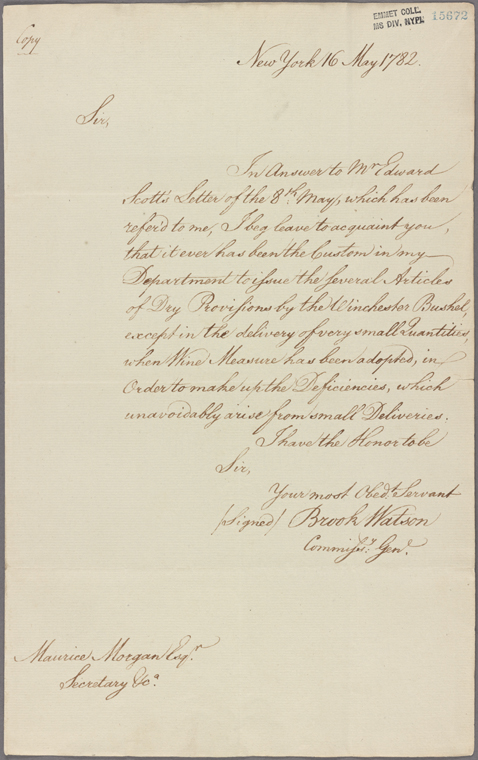 Copy
EMMET COLL.
MS DIV. NYPL
15672
New York 16 May 1782.
Sir,
In Answer to Mr Edward
Scott's Letter of the 8th May, which has been
refer'd to me, I beg leave to acquaint you,
that it ever has been the Custom in my
Department to issue the several Articles
of Dry Provisions by the Winchester Bushel,
except in the delivery of very small Quantities,
when Wine Measure has been adopted, in
Order to make up the Deficiencies, which
unavoidably arise from small Deliveries.
I have the Honor to be
Sir,
Your most Obedt Servant
(signed) Brook Watson
Commissy Genl
Maurice Morgan Esqr
Secretary &ca